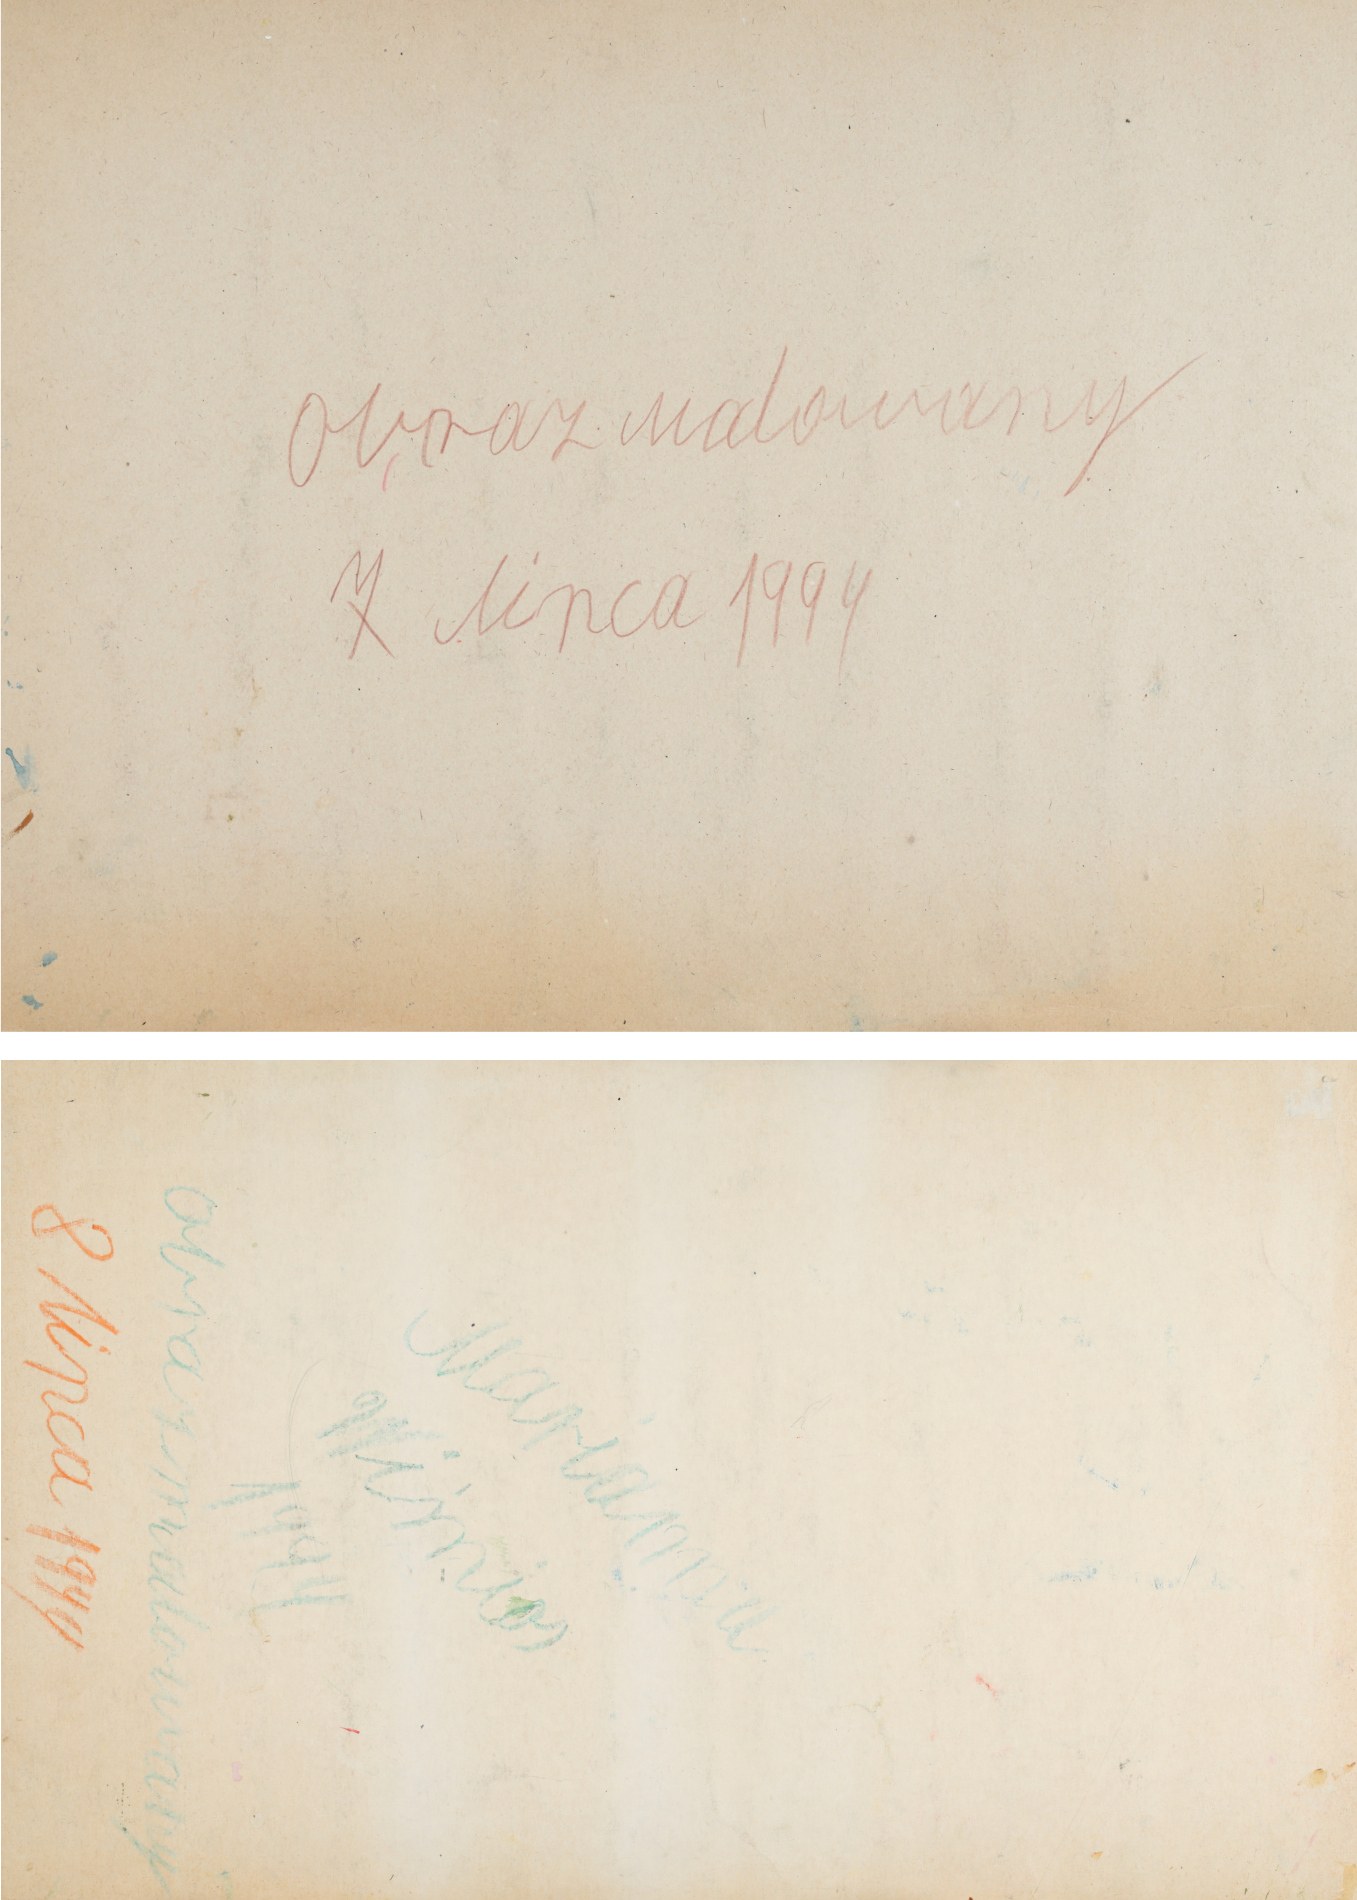 Obraz malowany
7 lipca 1994
8 lipca 1994
obraz malowany
Marianna
Wiśnios
1994